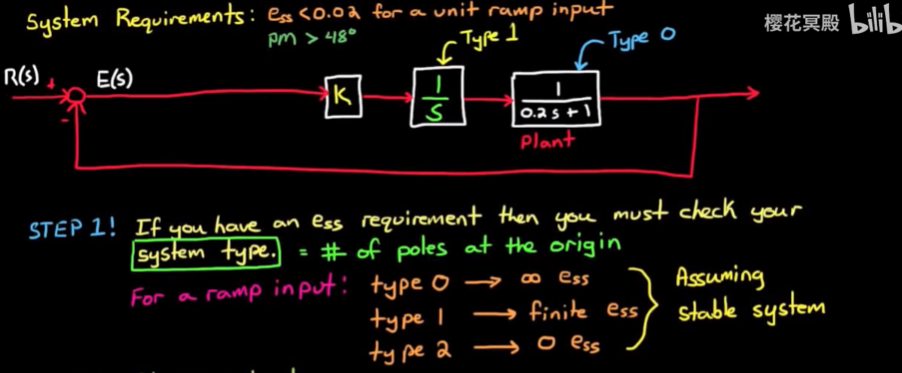 System Requirements: ess <0.02 for a unit ramp input
pm > 48°
樱花冥殿 bilib
Type 1
Type 0
R(s) + E(s)
-
K
1
S
1
0.2s+1
Plant
STEP 1! If you have an ess requirement then you must check your
system type. = # of poles at the origin
For a ramp input: type 0 → ∞ ess
type 1 → finite ess
type 2 → 0 ess
Assuming
stable system